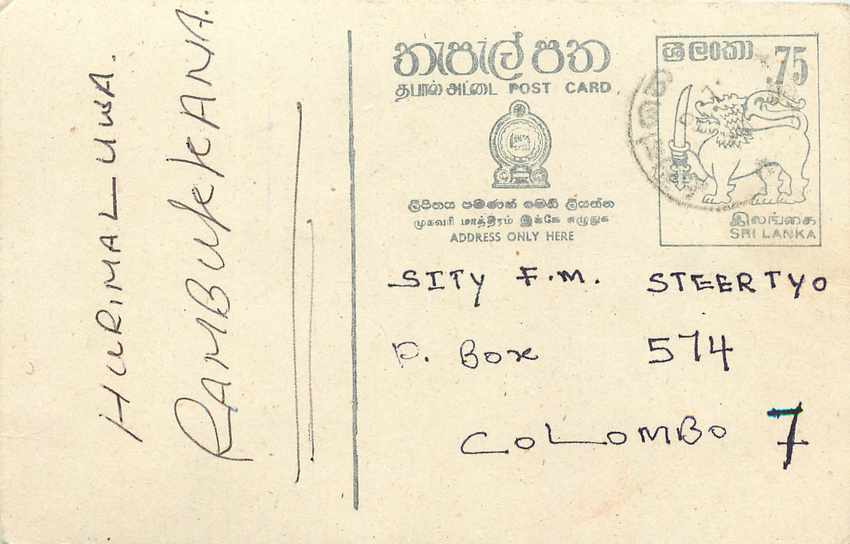 HURIMALUWA.
RAMBUKKANA.
තැපැල් පත
தபால் அட்டை POST CARD
ශ්‍රී ලංකා
.75
ලිපිනය පමණක් මෙහි ලියන්න
முகவரி மாத்திரம் இங்கே எழுதுக
ADDRESS ONLY HERE
இலங்கை
SRI LANKA
SITY F.M. STEERTYO
P. Box 574
COLOMBO 7